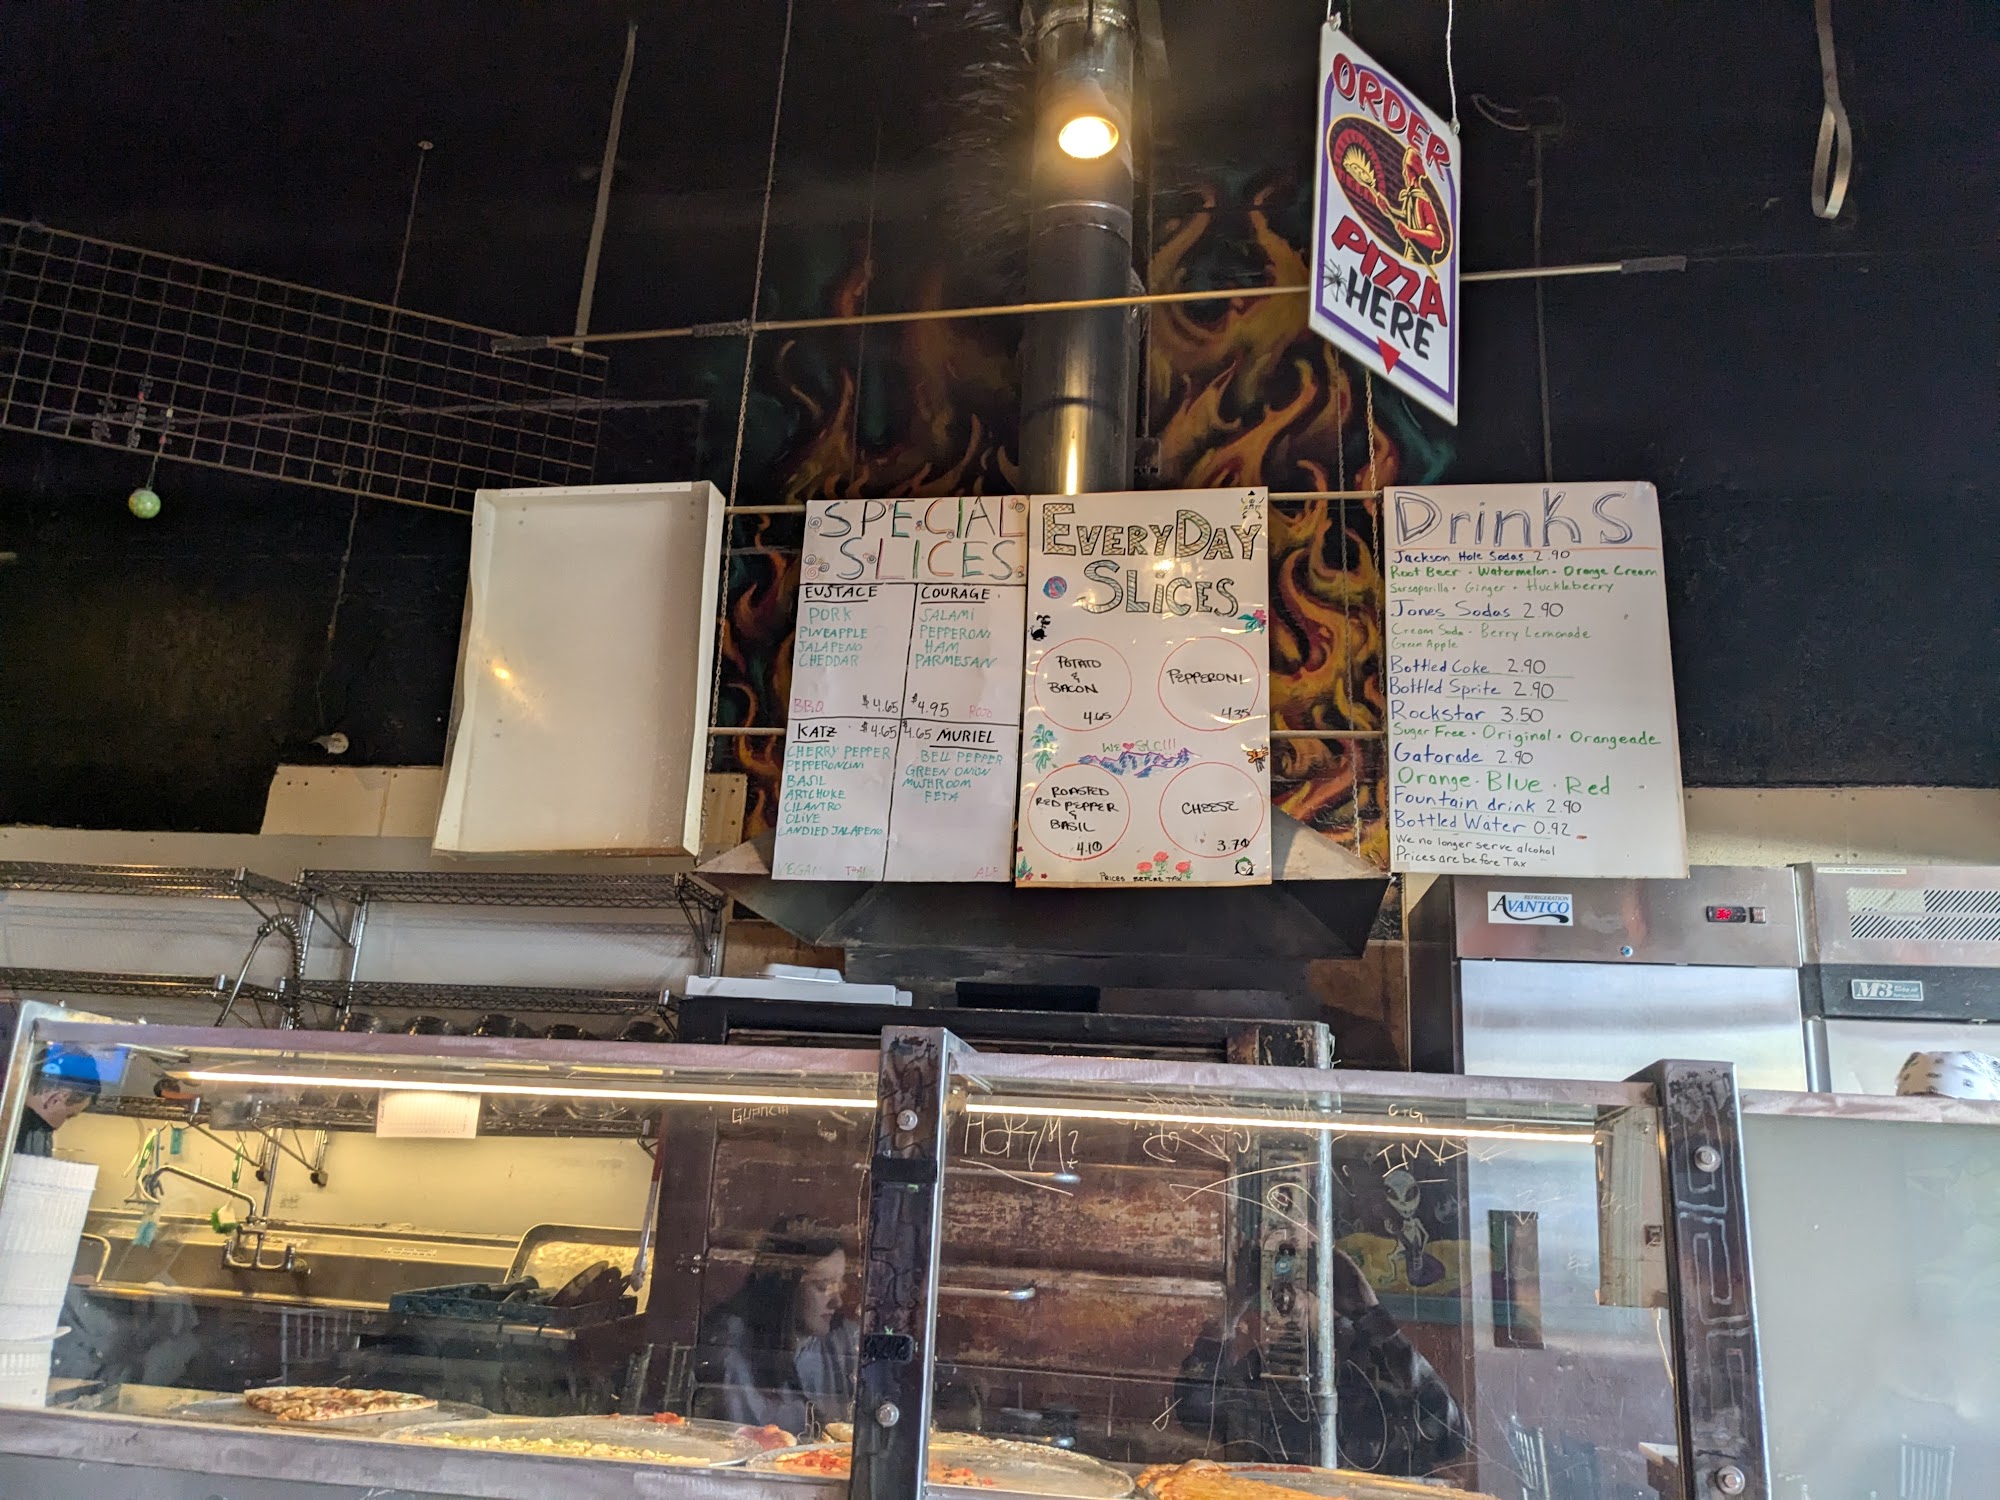 ORDER
PIZZA
HERE
SPECIAL
SLICES
EUSTACE
PORK
PINEAPPLE
JALAPENO
CHEDDAR
BBQ $4.65
COURAGE
SALAMI
PEPPERONI
HAM
PARMESAN
$4.95 ROJO
KATZ $4.65
CHERRY PEPPER
PEPPERONCINI
BASIL
ARTCHOKE
CILANTRO
OLIVE
CANDIED JALAPENO
VEGAN
$4.65 MURIEL
BELL PEPPER
GREEN ONION
MUSHROOM
FETA
ALF
EVERYDAY
SLICES
POTATO
&
BACON
4.65
PEPPERONI
4.35
WE ♥ SLC!!!
ROASTED
RED PEPPER
&
BASIL
4.10
CHEESE
3.70
PRICES BEFORE TAX
Drinks
Jackson Hole Sodas 2.90
Root Beer • Watermelon • Orange Cream
Sarsaparilla • Ginger • Huckleberry
Jones Sodas 2.90
Cream Soda • Berry Lemonade
Green Apple
Bottled Coke 2.90
Bottled Sprite 2.90
Rockstar 3.50
Sugar Free • Original • Orangeade
Gatorade 2.90
Orange • Blue • Red
Fountain drink 2.90
Bottled Water 0.92
We no longer serve alcohol
Prices are before Tax
REFRIGERATION
AVANTCO
M3